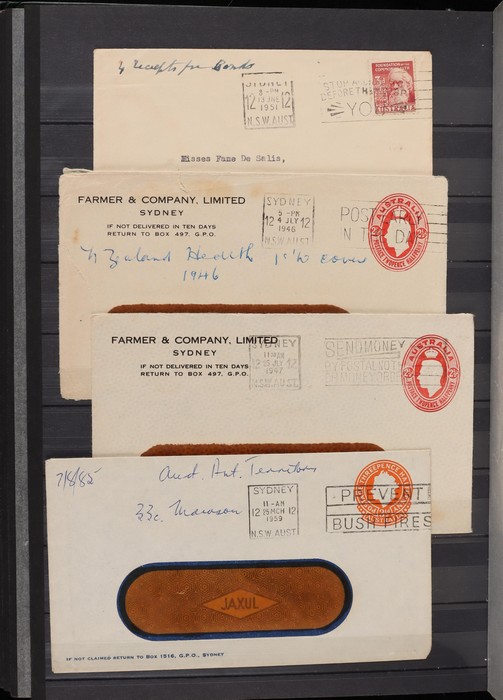 4 Receipts for Bonds
SYDNEY
12 12
1951
N.S.W. AUST
FOUNDATION OF THE
COMMONWEALTH
AUSTRALIA
Misses Fane De Salis,
FARMER & COMPANY, LIMITED
SYDNEY
IF NOT DELIVERED IN TEN DAYS
RETURN TO BOX 497, G.P.O.
SYDNEY
5 - PM
12 4 JLY 12
1946
N.S.W. AUST
AUSTRALIA
1946
FARMER & COMPANY, LIMITED
SYDNEY
IF NOT DELIVERED IN TEN DAYS
RETURN TO BOX 497, G.P.O.
SYDNEY
1947
N.S.W. AUST
SEND MONEY
BY POSTAL NOTE
AUSTRALIA
7/8/85
Aust. Ant. Territory
33c. Mawson
SYDNEY
11 - AM
12 25 MCH 12
1959
N.S.W. AUST
PREVENT
BUSH FIRES
JAXUL
IF NOT CLAIMED RETURN TO BOX 1516, G.P.O., SYDNEY